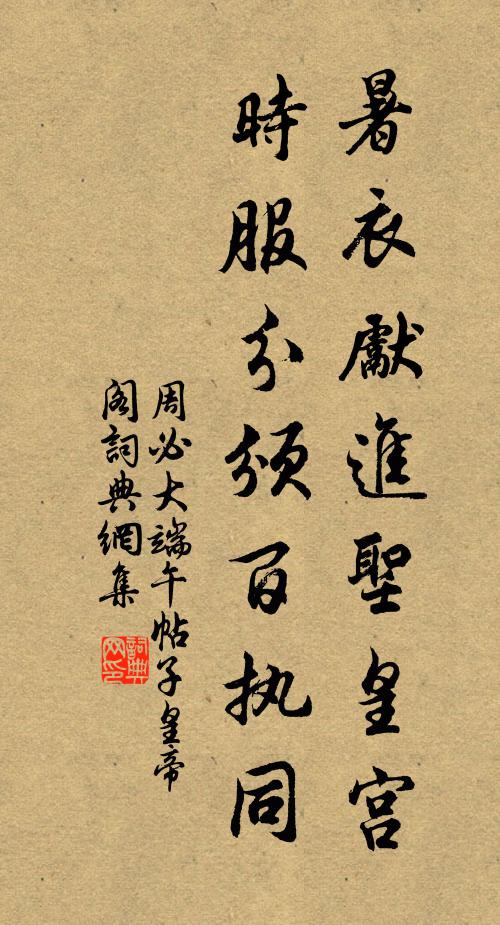 暑衣獻進聖皇宫
時服分頒百执同
周必大端午帖子皇帝
閣詞典網集
詞典网印